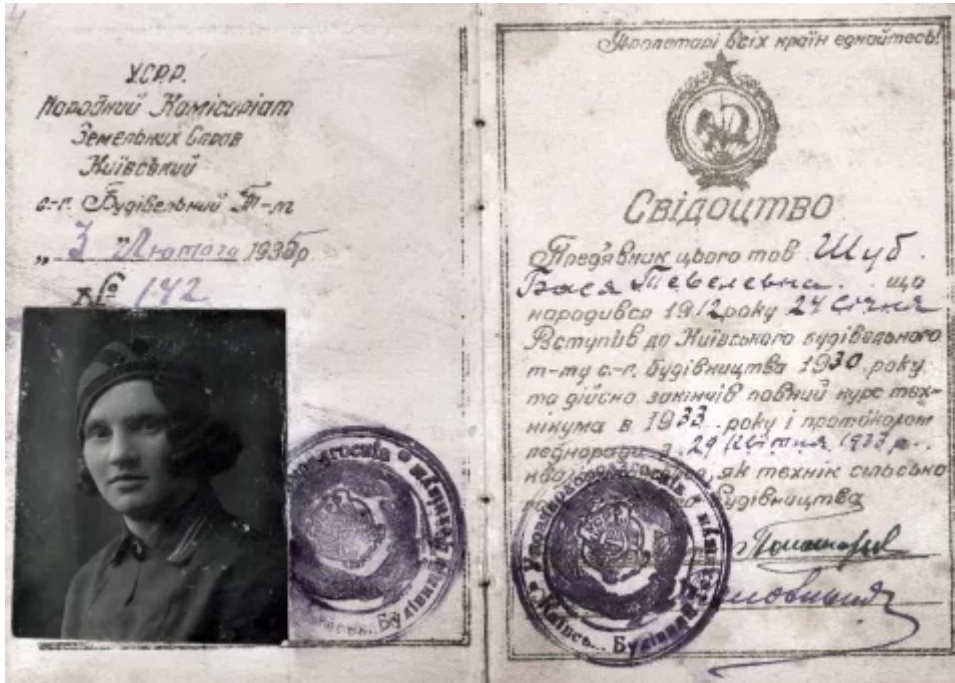 У.С.Р.Р.
Народний Комісаріат
Земельних Справ
Київський
с.-г. Будівельний Т-м
„ 3 " Лютого 1935р
№ 142
Пролетарі всіх країн єднайтесь!
Свідоцтво
Пред'явник цього тов. Шуб
Бася Тевелевна. що
народився 1912 року 24 січня
Вступив до Київського будівельного
т-му с.-г. будівництва 1930 року
та дійсно закінчів повний курс тех-
нікума в 1933 року і протоколом
педнаради з 29 квітня 1933 р.
як технік сільсько
будівництва